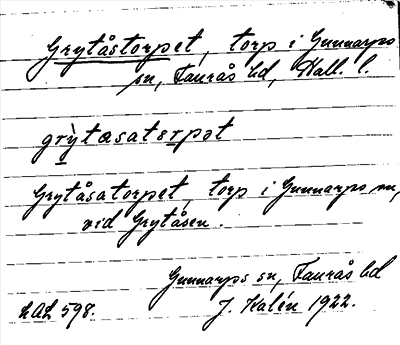 Grytåstorpet, torp i Gunnarps
sn, Faurås hd, Hall. l.
grỳtasatorpət
Grytåsatorpet, torp i Gunnarps sn,
vid Grytåsen.
Gunnarps sn, Faurås hd
LAL 598. J. Kalén 1922.